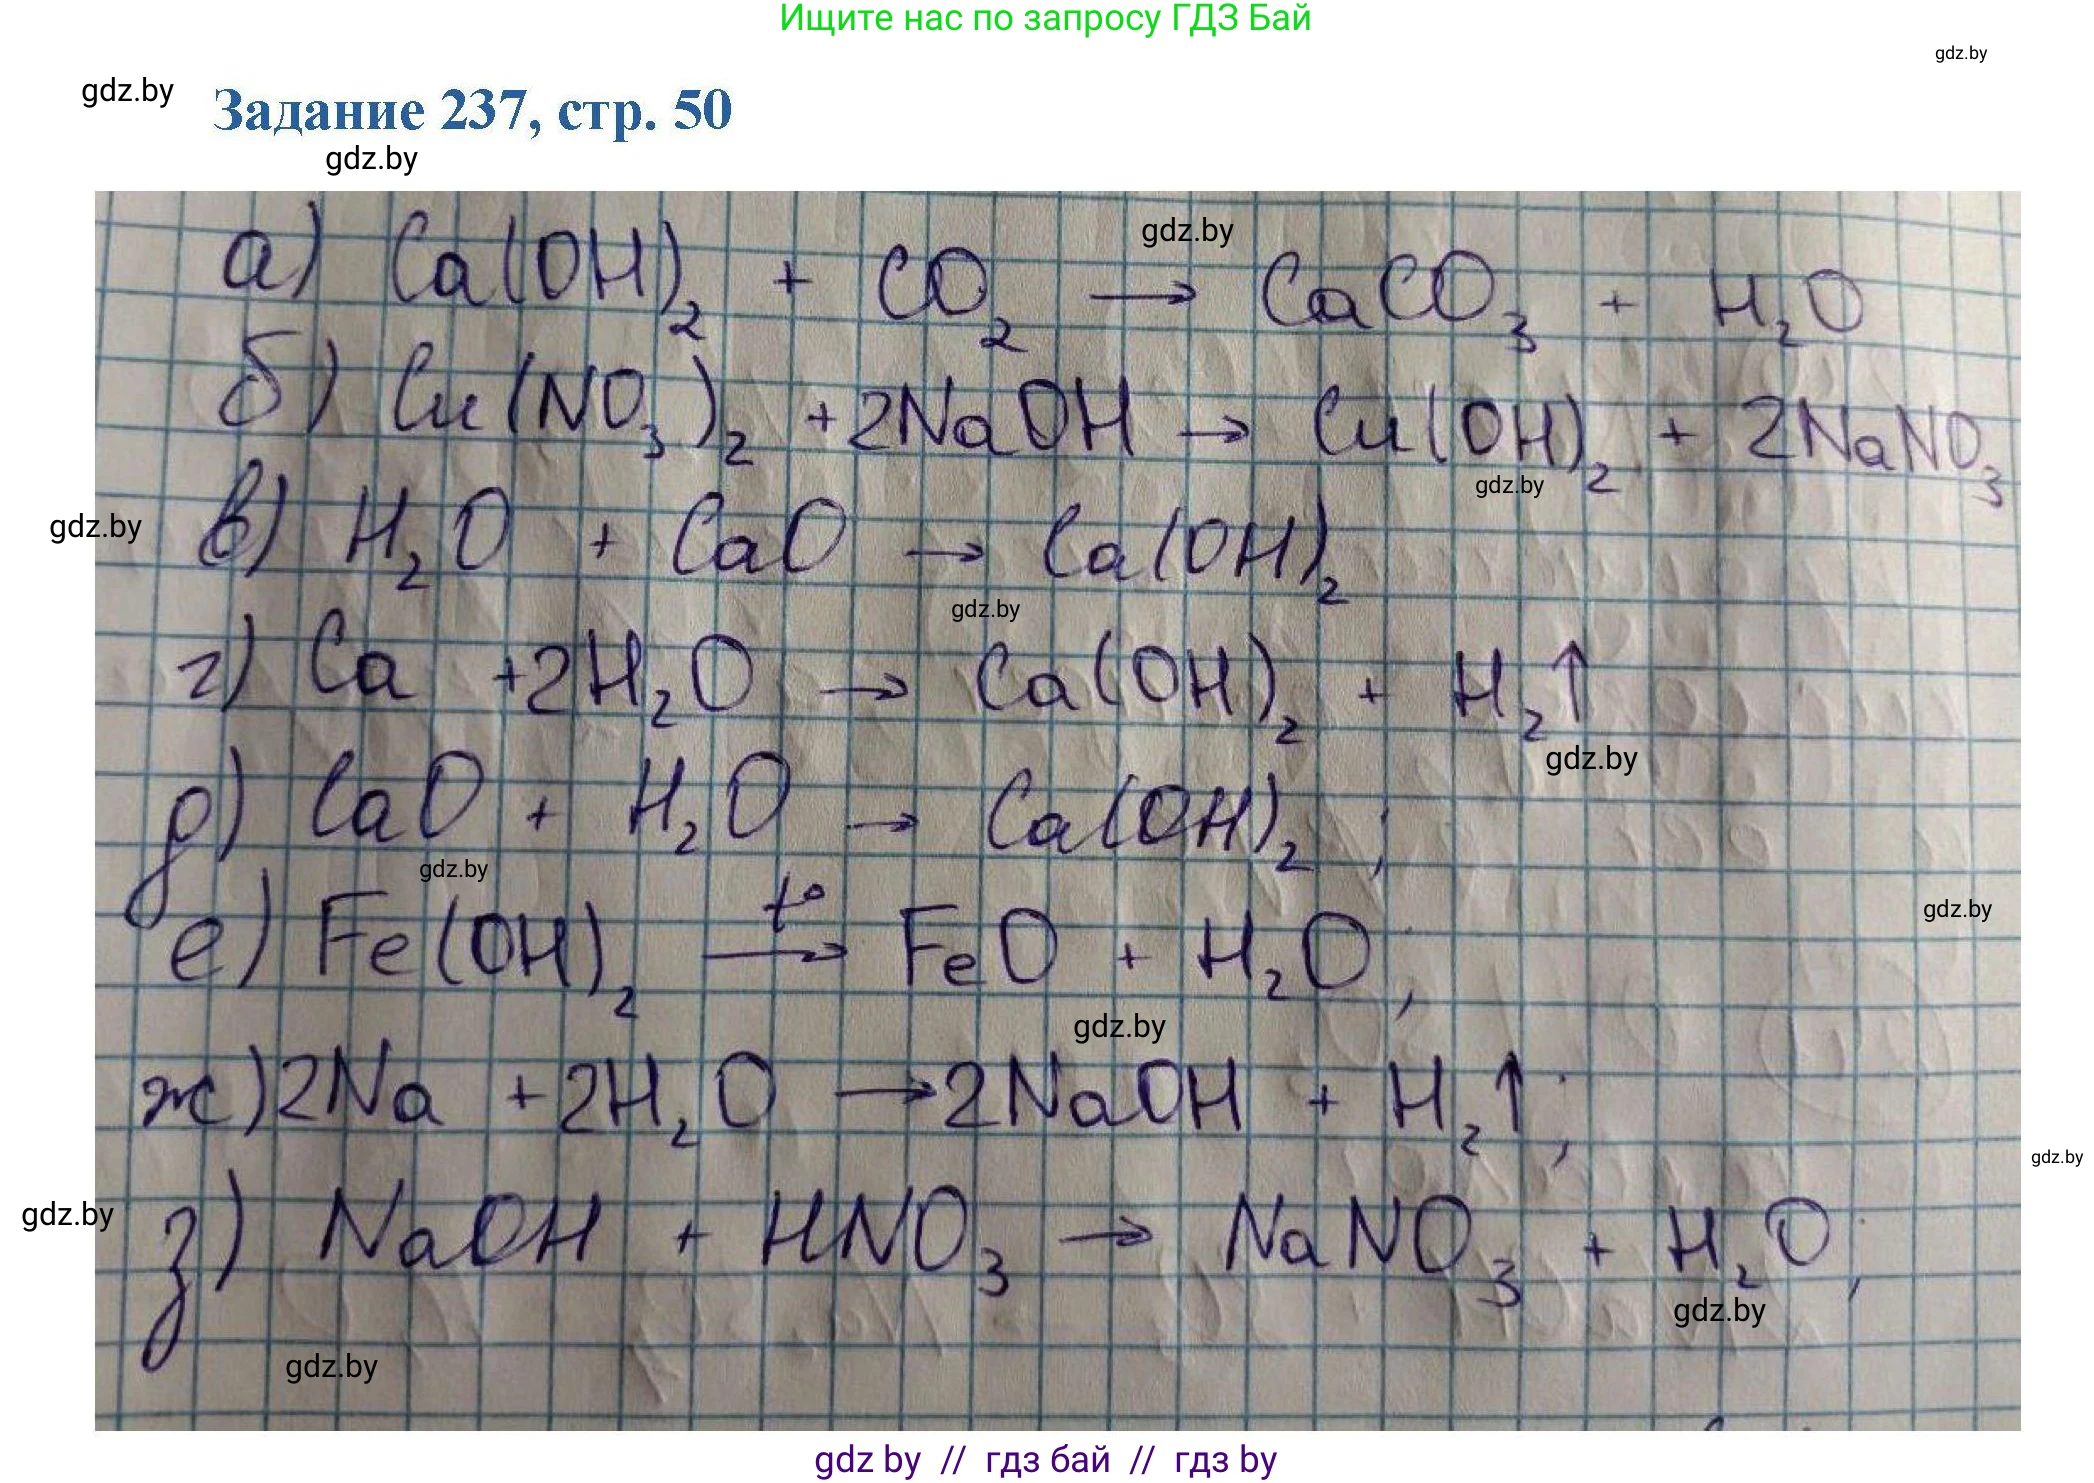 Ищите нас по запросу ГДЗ Бай
gdz.by
gdz.by
Задание 237, стр. 50
gdz.by
gdz.by
а) Ca(OH)₂ + CO₂ → CaCO₃ + H₂O
б) Cu(NO₃)₂ + 2NaOH → Cu(OH)₂ + 2NaNO₃
gdz.by
gdz.by
в) H₂O + CaO → Ca(OH)₂
gdz.by
г) Ca + 2H₂O → Ca(OH)₂ + H₂↑
gdz.by
д) CaO + H₂O → Ca(OH)₂ ;
gdz.by
gdz.by
е) Fe(OH)₂ t° → FeO + H₂O ;
gdz.by
ж) 2Na + 2H₂O → 2NaOH + H₂↑ ;
gdz.by
gdz.by
з) NaOH + HNO₃ → NaNO₃ + H₂O ;
gdz.by
gdz.by
gdz by // гдз бай // гдз by